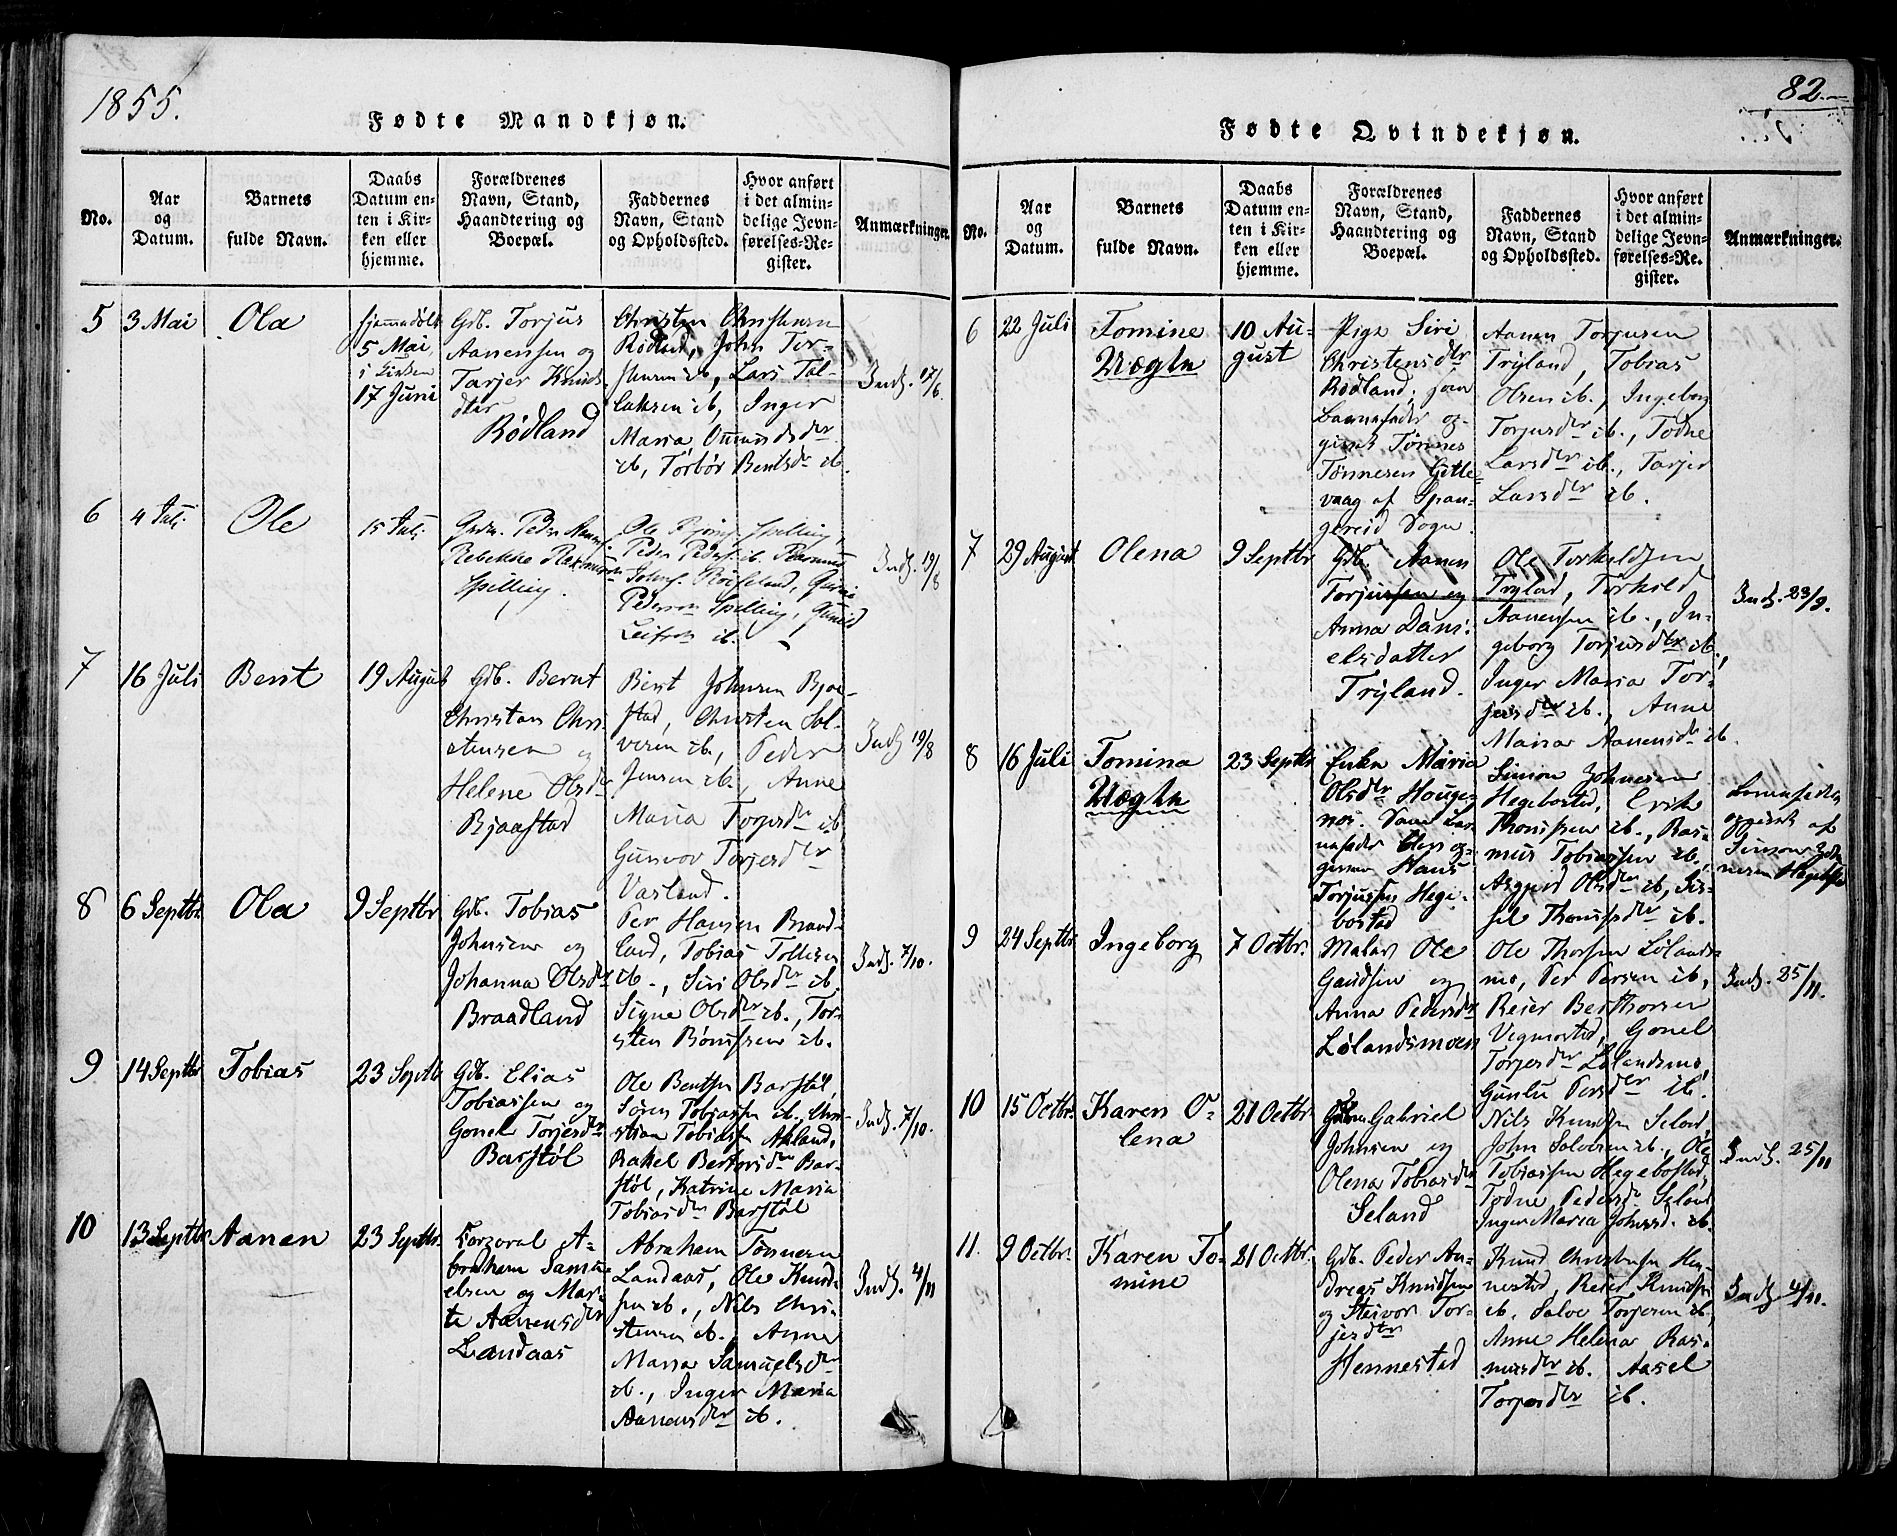 1855.
Fødte Mandkjøn.
No.
Aar
og
Datum.
Barnets
fulde Navn.
Daabs
Datum en-
ten i Kir-
ken eller
hjemme.
Forældrenes
Navn, Stand,
Haandtering og
Boepæl.
Faddernes
Navn, Stand
og Opholdssted.
Hvor anført
i det almin-
delige Jevn-
førelses-Re-
gister.
Anmærkninger.
5
3 Mai
Ola
hjemmedøbt
5 Mai
i Kirken
17 Juni
Gdb. Torjus
Aanensen og
Tarjer Knuds-
dter
Rødland
Christen Christensen
Rødland, John Tor-
jusen ib, Lars Tol-
laksen ib, Inger
Maria Omundsdr
ib, Torbor Bentsdr ib.
Indf. 17/6.
6
4 Juli
Ole
15 Juli
Grdm. Peder
Rebekke Rasmusen
Spilling.
Ole Spilling,
Peder Peders. ib. Rasmus
Johns. Røiseland,
Pedersen Spilling, Gunild
ib.
Indf. 19/8
7
16 Juli
Bent
19 August
Gdb. Bernt
Christian Chri-
stensen og
Helene Olsdr
Bjaastad
Bent Johnsen Bjoe-
stad, Christen Sal-
vesen ib, Peder
Jensen ib, Anne
Maria Torjersdr ib
Gunvor Torjersdr
Vasland.
Indf 19/8
8
6 Septbr
Ola
9 Septbr
Gdb. Tobias
Johnsen og
Johanna Olsdr
Braadland
Per Hansen Braad-
land, Tobias Tollisen
ib., Siri Olsdr ib,
Signe Olsdr ib., Tor-
sten Bønnssen ib.
Indf. 7/10.
9
14 Septbr
Tobias
23 Septbr
Gdb. Elias
Tobiassen og
Gonel Torjersdr
Barstøl
Ole Bentsen Barstøl,
Søren Tobiassen ib, Chri-
stian Tobiassen Akland,
Rakel Berthesdr Bar-
støl, Katrine Maria
Tobiasdr Barstøl
Indf. 7/10.
10
13 Septbr
Aanen
23 Septbr.
Korporal A-
braham Samu-
elsen og Mar-
te Aanensdr
Landaas
Abraham Tønnesen
Landaas, Ole Knud-
sen ib., Nils Chri-
stensen ib., Anne
Maria Samuelsdr
ib., Inger Maria
Aanensdr ib.
Indf. 4/11
82.
Fødte Qvindekjøn.
No.
Aar
og
Datum.
Barnets
fulde Navn.
Daabs
Datum en-
ten i Kir-
ken eller
hjemme.
Forældrenes
Navn, Stand,
Haandtering og
Boepæl.
Faddernes
Navn, Stand
og Opholdssted.
Hvor anført
i det almin-
delige Jevn-
førelses-Re-
gister.
Anmærkninger.
6
22 Juli
Tomine
Uægte
10 Au-
gust
Pige Siri
Christensdr
Rødland, som
Barnefader op-
givet Tønnes
Tønnesen Gitle-
vaag af Span-
gereid Sogn.
Aanen Torjusen
Tryland, Tobias
Olsen ib., Ingeborg
Torjusdr ib., Todne
Larsdr ib., Tarjer
Larsdr ib.
7
29 August
Olena
9 Septbr
Gdb. Aanen
Torjussen og
Anna Dani-
elsdatter
Tryland.
Ole Torkeldsen
Tryland, Torkild
Aanensen ib., In-
geborg Torjusdr ib,
Inger Maria Tor-
jusdr ib., Anne
Maria Aanensdr ib.
Indf. 23/9.
8
16 Juli
Tomina
Uægte
23 Septbr
Enke Maria
Olsdr Houge-
nos. Som Bar-
nefader blev op-
given Hans
Torjussen Hege-
bostad
Simon Johnesen
Hegebostad, Erik
Thomssen ib., Ras-
mus Tobiassen ib.,
Asgjerd Olsdr ib, Sis-
sel Thomssdr ib.
Barnefader
opgivet af
Simon Joh-
nesen Hegebostad
9
24 Septbr
Ingeborg
7 Octbr.
Maler Ole
Gundsen og
Anna Pedersdr
Lølandsmoen
Ole Thorsen Lølands-
mo, Per Persen ib,
Reier Berthorsen
Vegmostad, Gonel
Torjersdr Lølandsmo,
Gunlu Persdr ib.
Indf. 25/11.
10
15 Octbr.
Karen O-
lena
21 Octbr
Gabriel
Johnsen og
Olena Tobiasdr
Seland
Nils Knudsen Seland,
John Salvesen ib., Ole
Tobiassen Hegebostad,
Todne Pedersdr Seland
Inger Maria Johnsd. ib.
Indf. 25/11
11.
9 Octbr.
Karen To-
mine
21 Octbr.
Gdb. Peder An-
dreas Knudsen
og Steivor Tor-
jersdtr
Hennestad
Knud Christensen Hen-
nestad, Reier Knudsen
ib. Salve Torjersen ib,
Anne Helena Ras-
musdr ib. Aasel
Torjersdr ib.
Indf. 4/11.